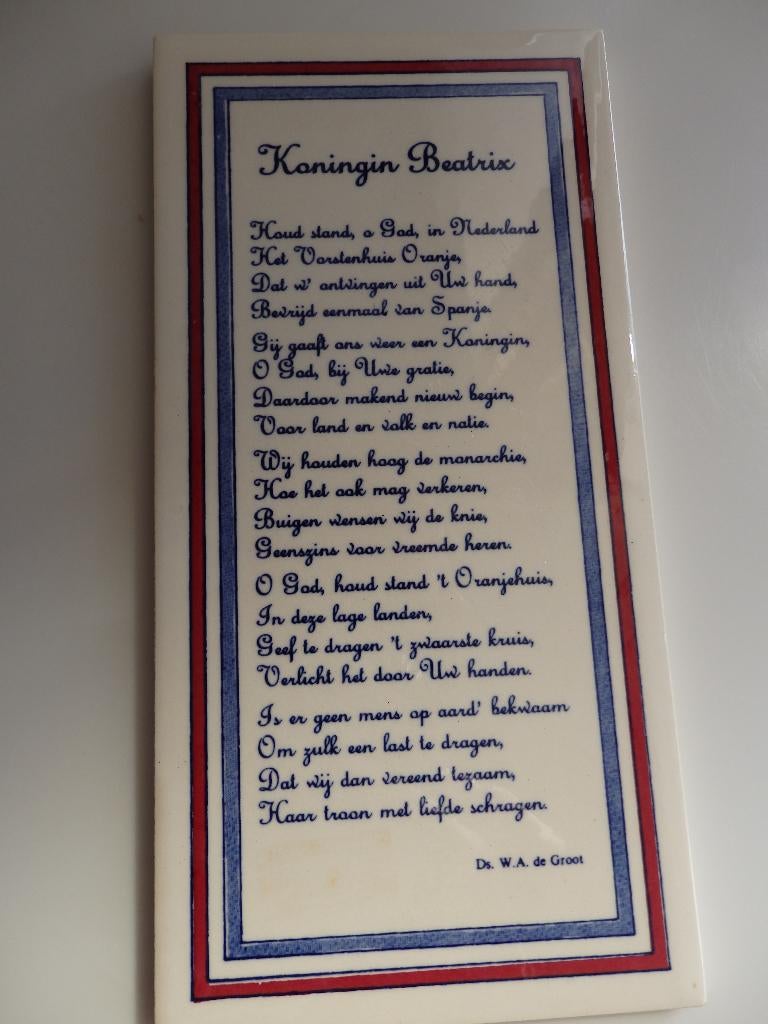 Koningin Beatrix
Houd stand, o God, in Nederland
Het Vorstenhuis Oranje,
Dat w' ontvingen uit Uw hand,
Bevrijd eenmaal van Spanje.
Gij gaaft ons weer een Koningin,
O God, bij Uwe gratie,
Daardoor makend nieuw begin,
Voor land en volk en natie.
Wij houden hoog de monarchie,
Hoe het ook mag verkeren,
Buigen wensen wij de knie,
Geenszins voor vreemde heren.
O God, houd stand 't Oranjehuis,
In deze lage landen,
Geef te dragen 't zwaarste kruis,
Verlicht het door Uw handen.
Is er geen mens op aard' bekwaam
Om zulk een last te dragen,
Dat wij dan vereend tezaam,
Haar troon met liefde schragen.
Ds. W.A. de Groot